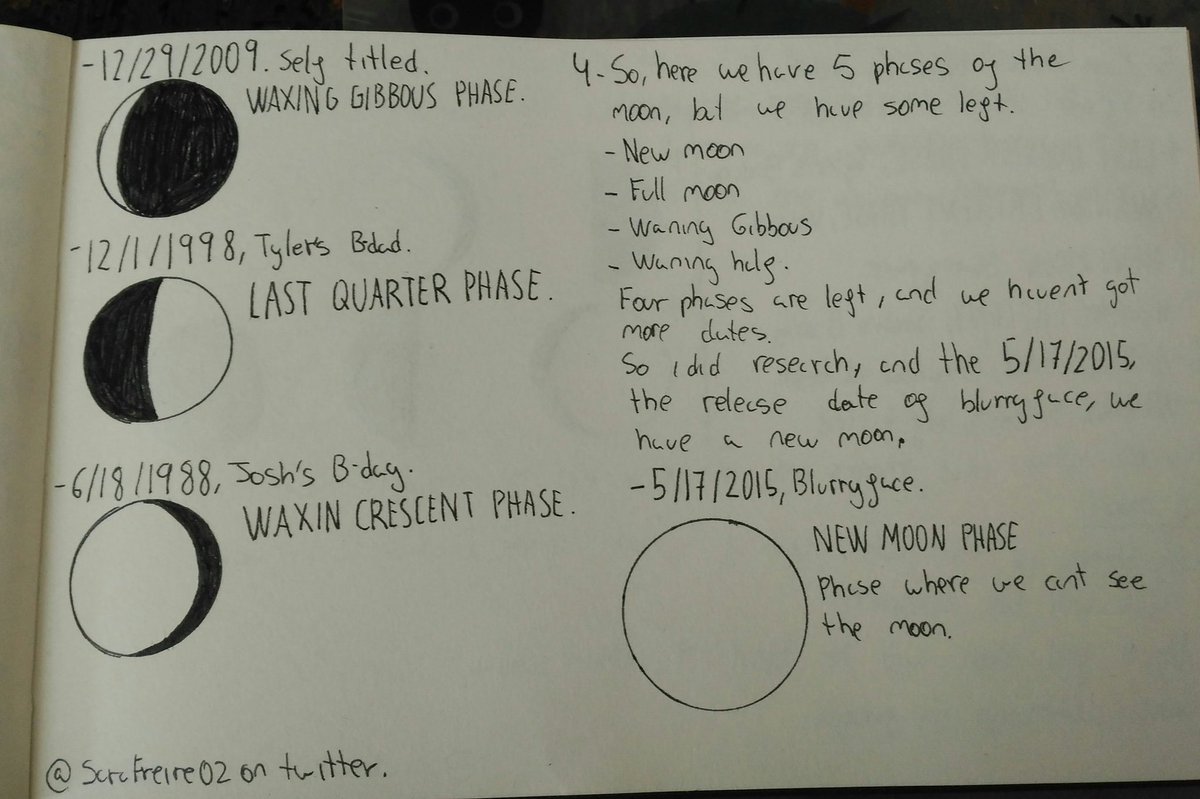 -12/29/2009. Self titled.
WAXING GIBBOUS PHASE.
-12/1/1998, Tyler's B-dad.
LAST QUARTER PHASE.
-6/18/1988, Josh's B-day.
WAXIN CRESCENT PHASE.
@SaraFreire02 on twitter.
4- So, here we have 5 phases of the
moon, but we have some left.
- New moon
- Full moon
- Waning Gibbous
- Waning half.
Four phases are left, and we havent got
more dates.
So i did research, and the 5/17/2015,
the release date of blurryface, we
have a new moon.
-5/17/2015, Blurryface.
NEW MOON PHASE
Phase where we cant see
the moon.